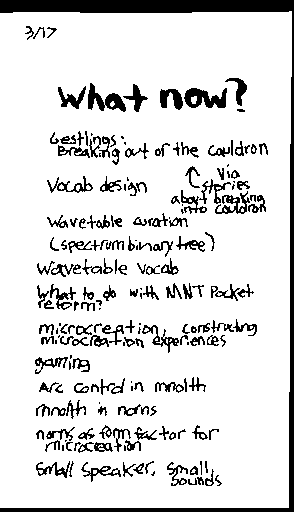 3/17
What now?
Gestlings:
Breaking out of the cauldron
Vocab design
via
stories
about breaking
into cauldron
Wavetable curation
(spectrum binary tree)
Wavetable vocab
What to do with MNT Pocket
reform?
microcreation, constructing
microcreation experiences
gaming
Arc control in mnolth
mnolth in norns
norns as form factor for
microcreation
Small speaker, small
sounds